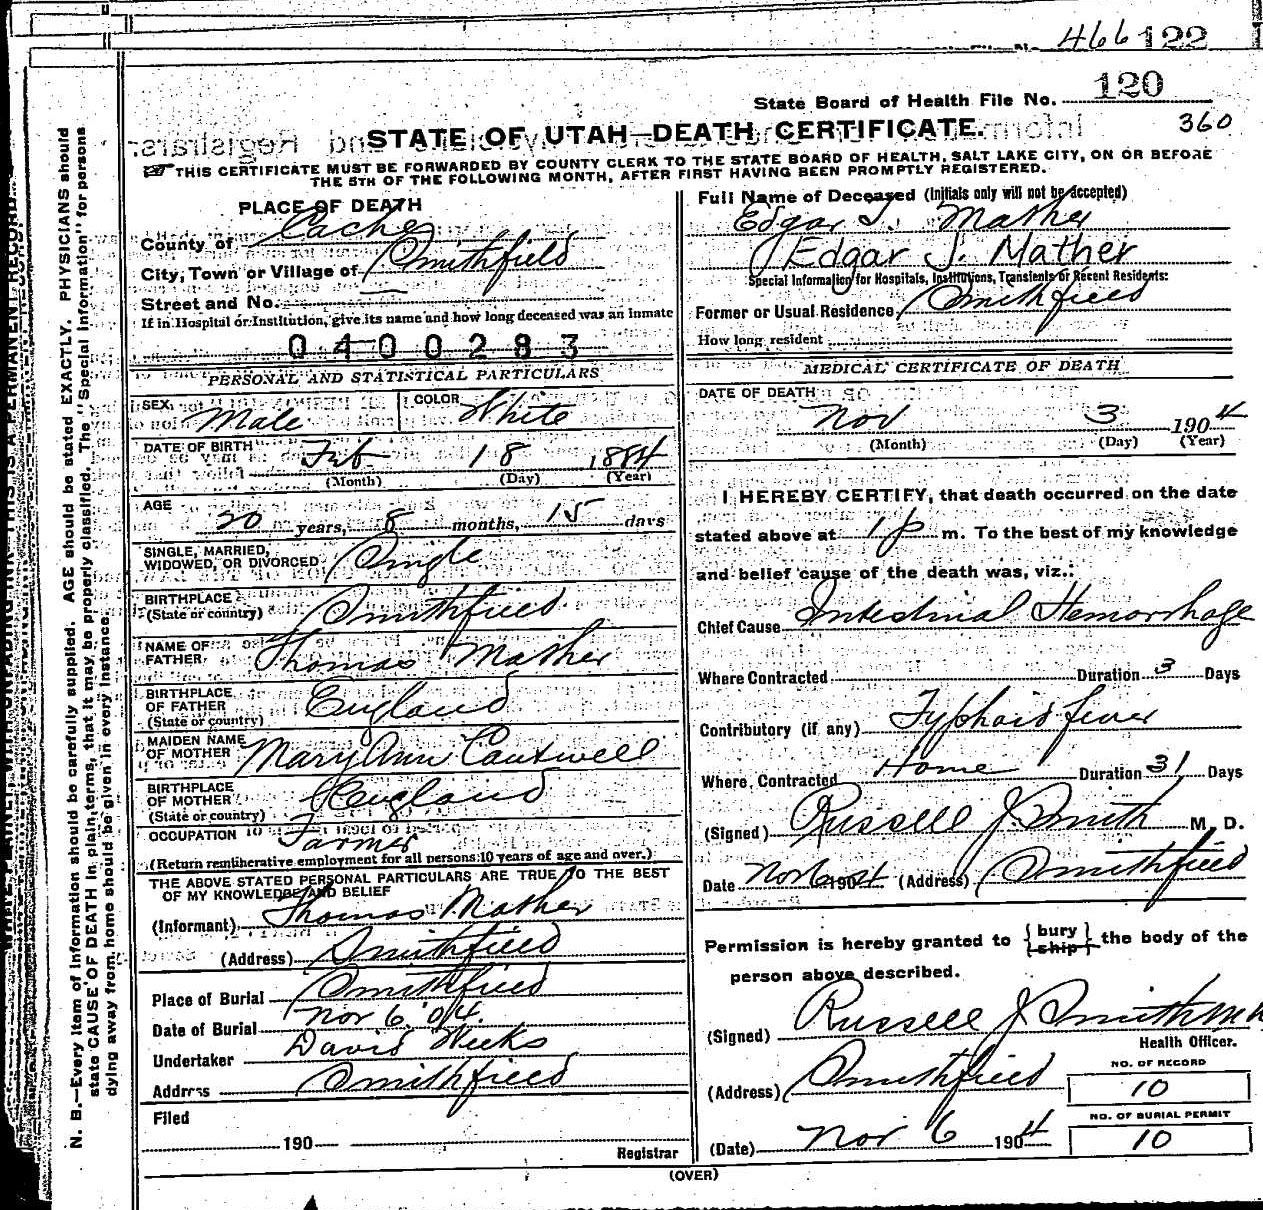 466 122
State Board of Health File No. 120
STATE OF UTAH—DEATH CERTIFICATE.
360
THIS CERTIFICATE MUST BE FORWARDED BY COUNTY CLERK TO THE STATE BOARD OF HEALTH, SALT LAKE CITY, ON OR BEFORE
THE 5TH OF THE FOLLOWING MONTH, AFTER FIRST HAVING BEEN PROMPTLY REGISTERED.
N. B.—Every item of information should be carefully supplied. AGE should be stated EXACTLY. PHYSICIANS should
state CAUSE OF DEATH in plain terms, that it may be properly classified. The "Special Information" for persons
dying away from home should be given in every instance.
PLACE OF DEATH
County of Cache
City, Town or Village of Smithfield
Street and No. —
If in Hospital or Institution, give its name and how long deceased was an inmate
0400283
PERSONAL AND STATISTICAL PARTICULARS
SEX, Male COLOR White
DATE OF BIRTH Feb 18 1884
(Month) (Day) (Year)
AGE
20 years, 8 months, 15 days
SINGLE, MARRIED,
WIDOWED, OR DIVORCED Single
BIRTHPLACE
(State or country) Smithfield
NAME OF
FATHER Thomas Mather
BIRTHPLACE
OF FATHER England
(State or country)
MAIDEN NAME
OF MOTHER Mary Ann Cantwell
BIRTHPLACE
OF MOTHER England
(State or country)
OCCUPATION Farmer
(Return remunerative employment for all persons 10 years of age and over.)
THE ABOVE STATED PERSONAL PARTICULARS ARE TRUE TO THE BEST
OF MY KNOWLEDGE AND BELIEF
(Informant) Thomas Mather
(Address) Smithfield
Place of Burial Smithfield
Date of Burial Nov 6 '04.
Undertaker David Weeks
Address Smithfield
Filed
190
Registrar
Full Name of Deceased (Initials only will not be accepted)
Edgar J. Mather
Edgar J. Mather
Special Information for Hospitals, Institutions, Transients or Recent Residents:
Former or Usual Residence Smithfield
How long resident
MEDICAL CERTIFICATE OF DEATH
DATE OF DEATH
Nov 3 1904
(Month) (Day) (Year)
I HEREBY CERTIFY, that death occurred on the date
stated above at 1 p m. To the best of my knowledge
and belief cause of the death was, viz.:
Chief Cause Intestinal Hemorrhage
Where Contracted Duration 3 Days
Contributory (if any) Typhoid fever
Where Contracted Home Duration 31 Days
(Signed) Russell J. Smith M. D.
Date Nov 6 1904 (Address) Smithfield
Permission is hereby granted to {bury
ship} the body of the
person above described.
(Signed) Russell J Smith MD
Health Officer.
(Address) Smithfield
NO. OF RECORD
10
NO. OF BURIAL PERMIT
10
(Date) Nov 6 1904
(OVER)